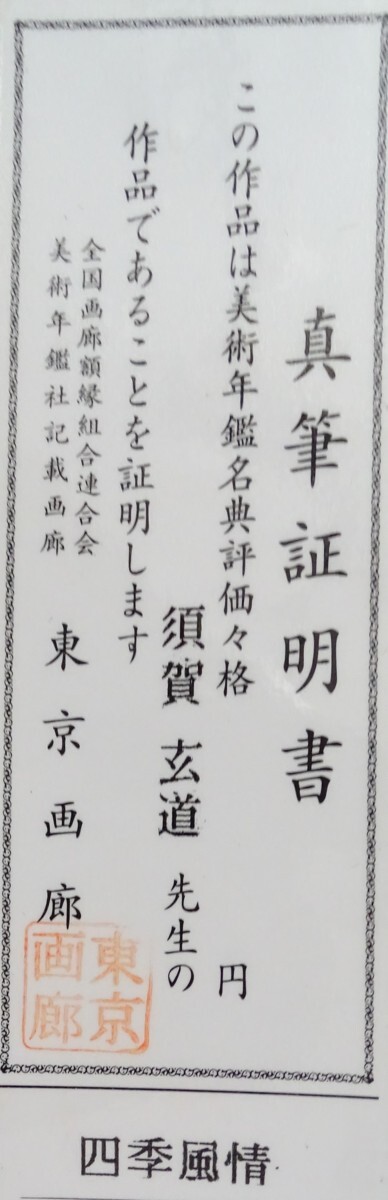 真筆証明書
この作品は美術年鑑名典評価々格 円
須賀玄道 先生の
作品であることを証明します
全国画廊額縁組合連合会
美術年鑑社記載画廊
東京画廊
東京画廊
四季風情